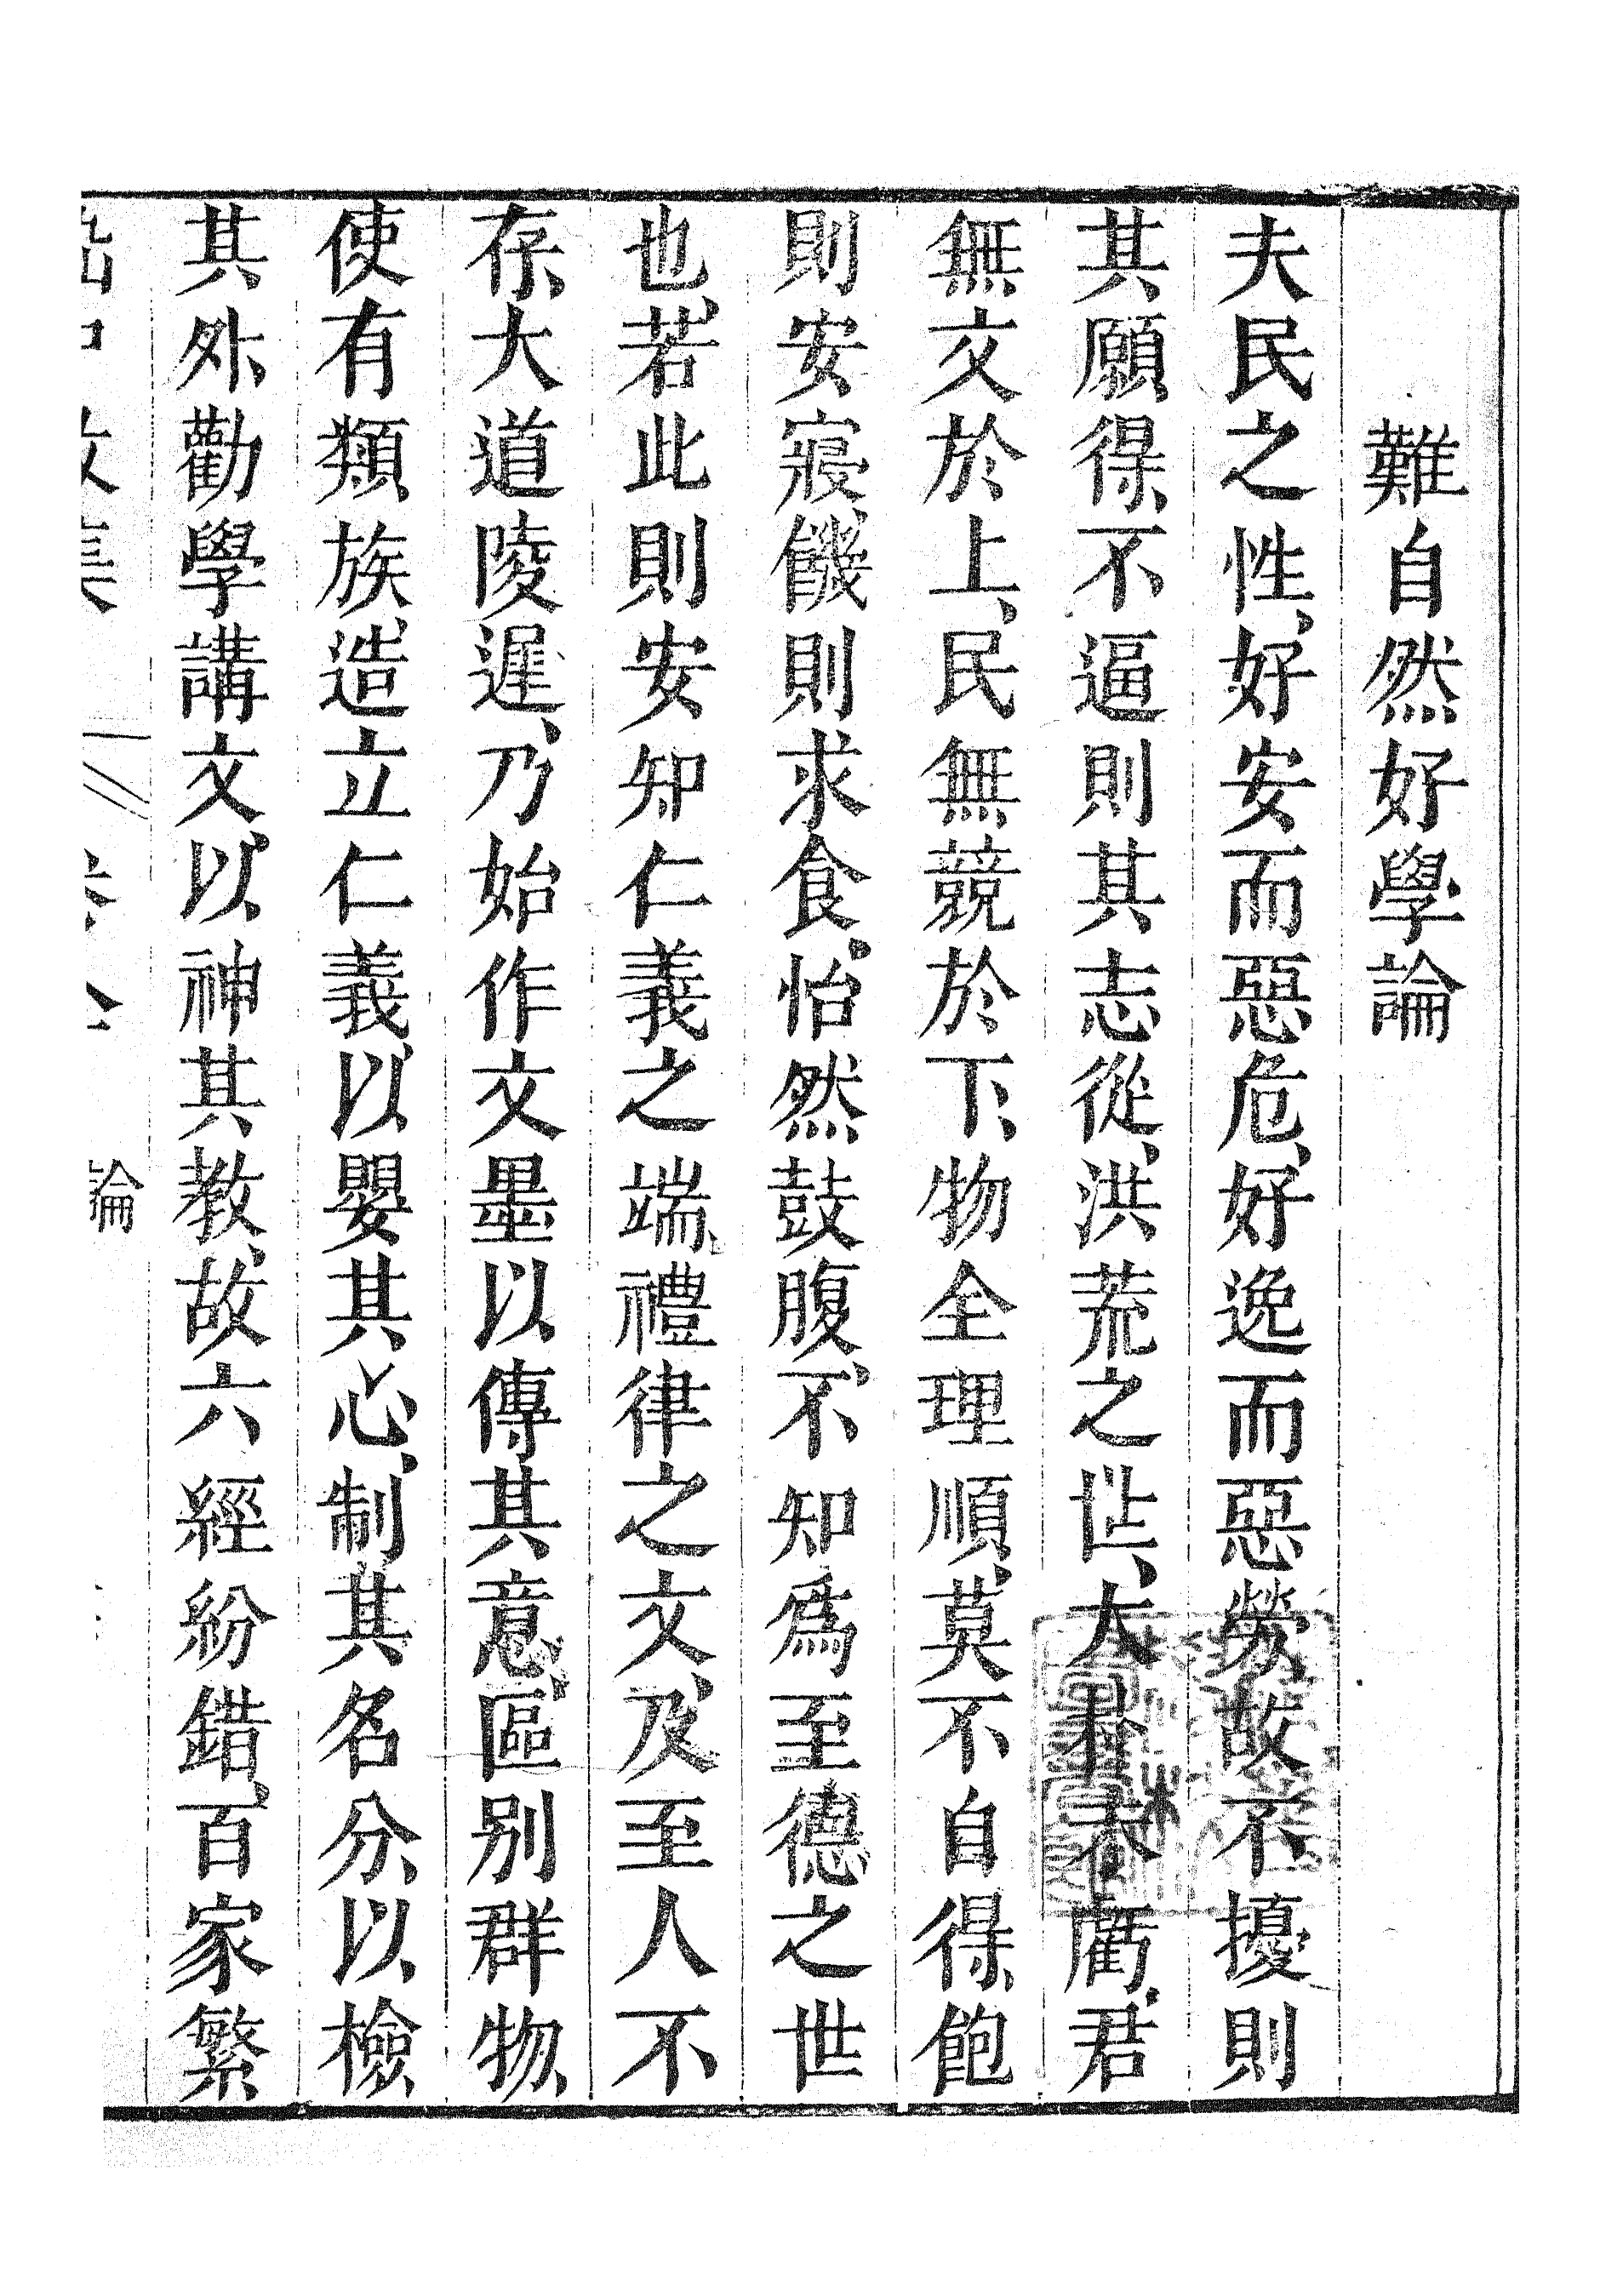 難自然好學論
夫民之性、好安而惡危、好逸而惡勞、故不擾則
其願得、不逼則其志從、洪荒之世、大朴未虧、君
無文於上、民無競於下、物全理順、莫不自得、飽
則安寢、饑則求食、怡然鼓腹、不知爲至德之世
也、若此則安知仁義之端、禮律之文、及至人不
存、大道陵遲、乃始作文墨以傳其意、區别群物、
使有類族、造立仁義以嬰其心、制其名分、以檢
其外、勸學講文、以神其教、故六經紛錯、百家繁
論